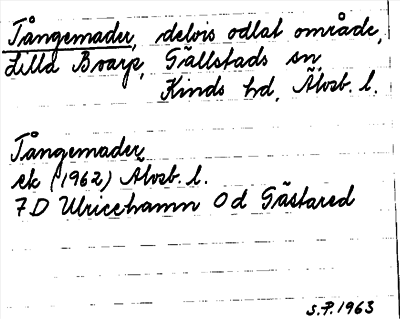 Tångemader, delvis odlat område,
Lilla Boarp, Gällstads sn,
Kinds hd, Älvsb. l.
Tångemader
ek (1962) Älvsb. l.
7D Ulricehamn 0d Gästared
S.P. 1963